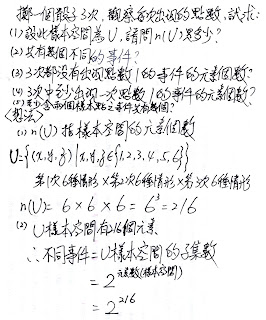 擲一個骰子3次,觀察每次出現的點數,試求:
(1)設此樣本空間為U,請問n(U)是多少?
(2)共有幾個不同的事件?
(3)3次都沒有出現點數1的事件的元素個數?
(4)3次中至少出現一次點數1的事件的元素個數?
(5)至少含兩個樣本點之事件又有幾個?
<想法>
(1) n(U)指樣本空間的元素個數
U={(x,y,z)|x,y,z∈{1,2,3,4,5,6}}
第1次6種情形×第2次6種情形×第3次6種情形
n(U)= 6×6×6=6³=216
(2) U樣本空間有216個元素
∴不同事件=U樣本空間的子集數
=2^元素數(樣本空間)
=2^216